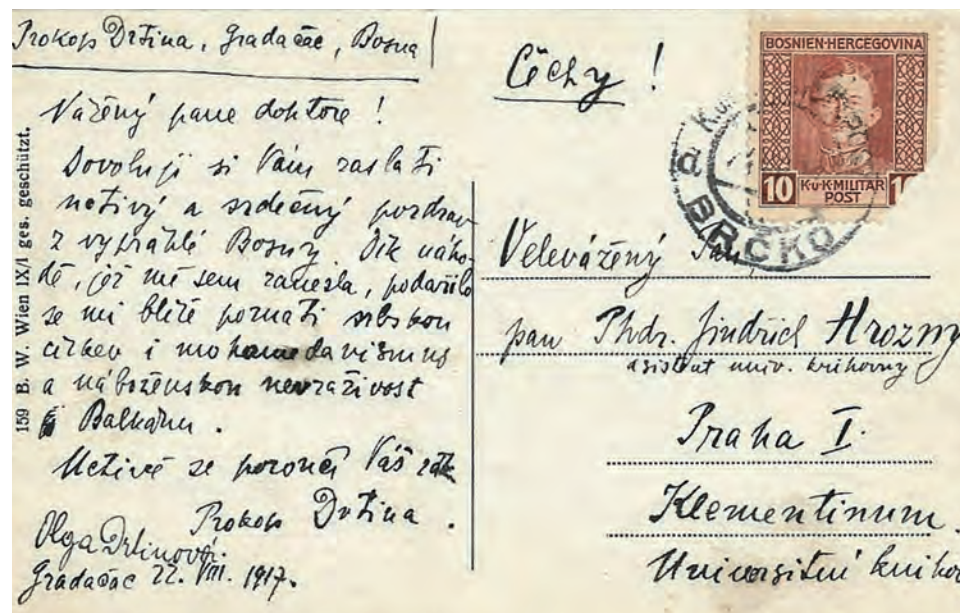 Prokop Drtina, Gradačac, Bosna
Vážený pane doktore!
Dovoluji si Vám zaslati
uctivý a srdečný pozdrav
z vyprahlé Bosny. Dík náho-
dě, jež mě sem zanesla, podařilo
se mi blíže poznati srbskou
církev i mohamedanismus
a náboženskou nevraživost
Balkánu.
Uctivě se poroučí Váš
Prokop Drtina.
Olga Drtinová.
Gradačac 22. VIII. 1917.
159 B. W. Wien IX/1 ges. geschützt.
Čechy!
BOSNIEN-HERCEGOVINA
10 K.u.K. MILITÄR POST 1
BRCKO
Velevážený Pan
pan Phdr. Jindřich Hrozný
asistent univ. knihovny
Praha I.
Klementinum.
Universitní kniho